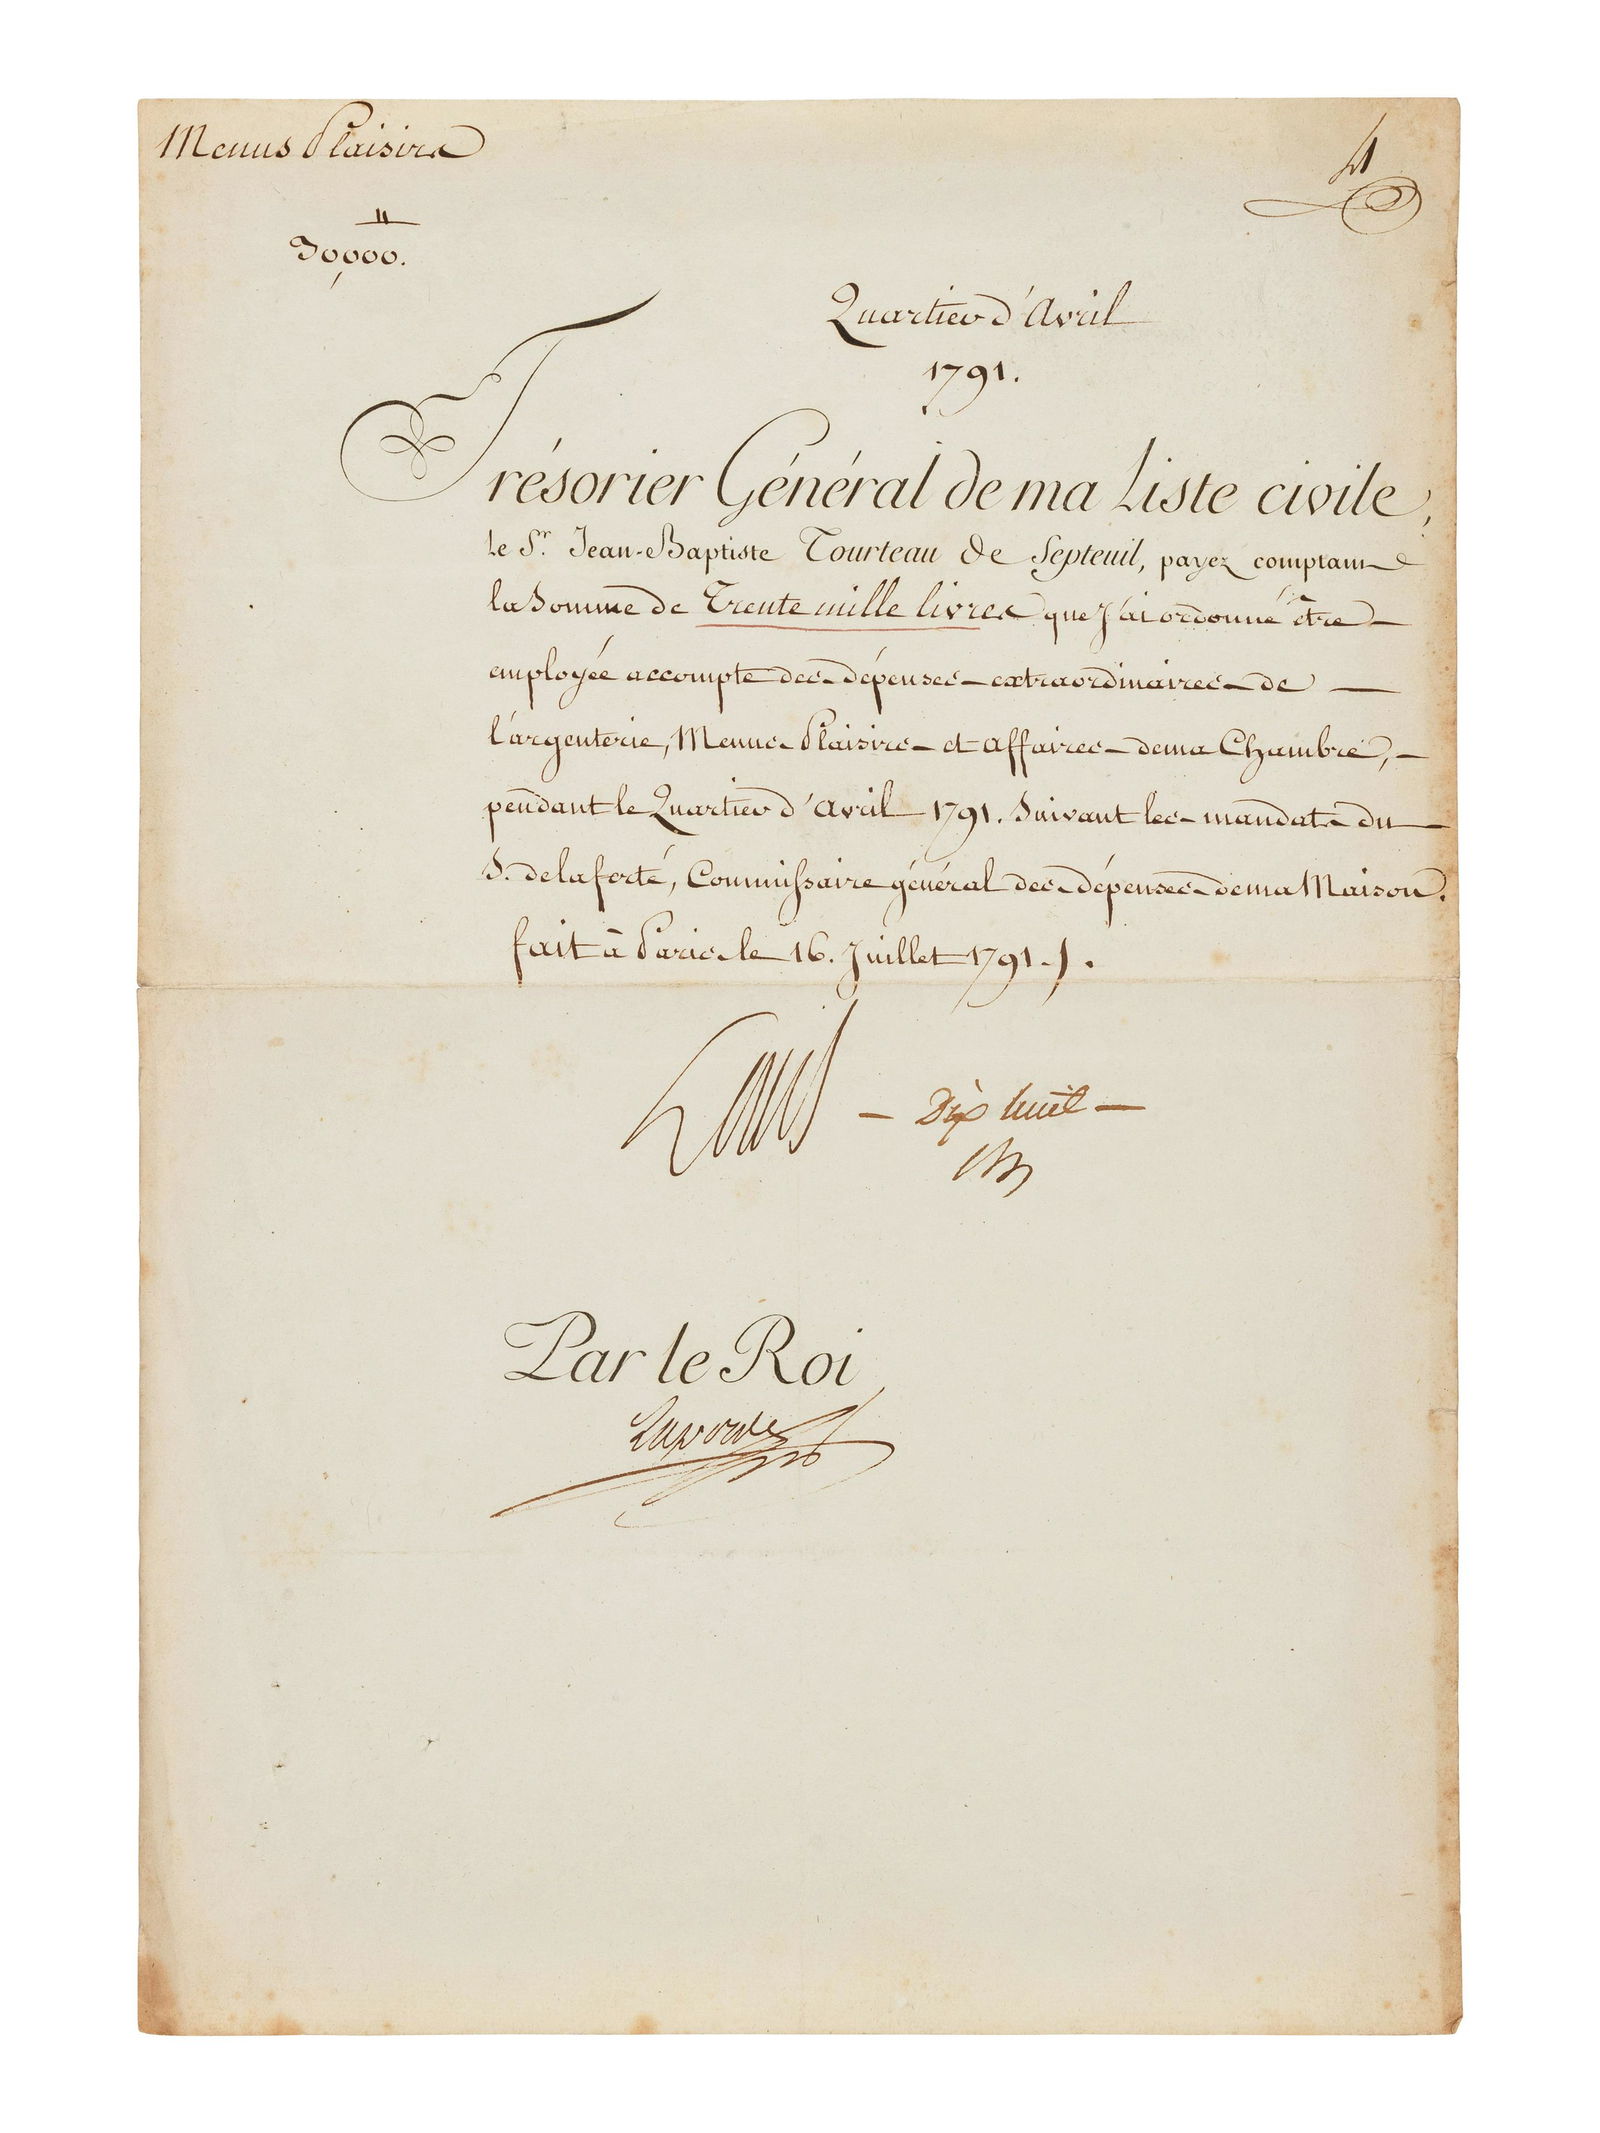 Menus Plaisirs
4
30000.
Quartier d'Avril
1791.
Trésorier Général de ma Liste civile,
le Sr. Jean-Baptiste Tourteau de Septeuil, payez comptant
la Somme de Trente mille livres que J'ai ordonné être
employée accompte des dépenses extraordinaires de
l'argenterie, Menus Plaisirs et affaires de ma Chambre,
pendant le Quartier d'Avril 1791. Suivant les mandats du
S. de la ferté, Commissaire général des dépenses de ma Maison.
fait à Paris le 16. Juillet 1791.
Louis
Dix huit
Par le Roi
Laporte